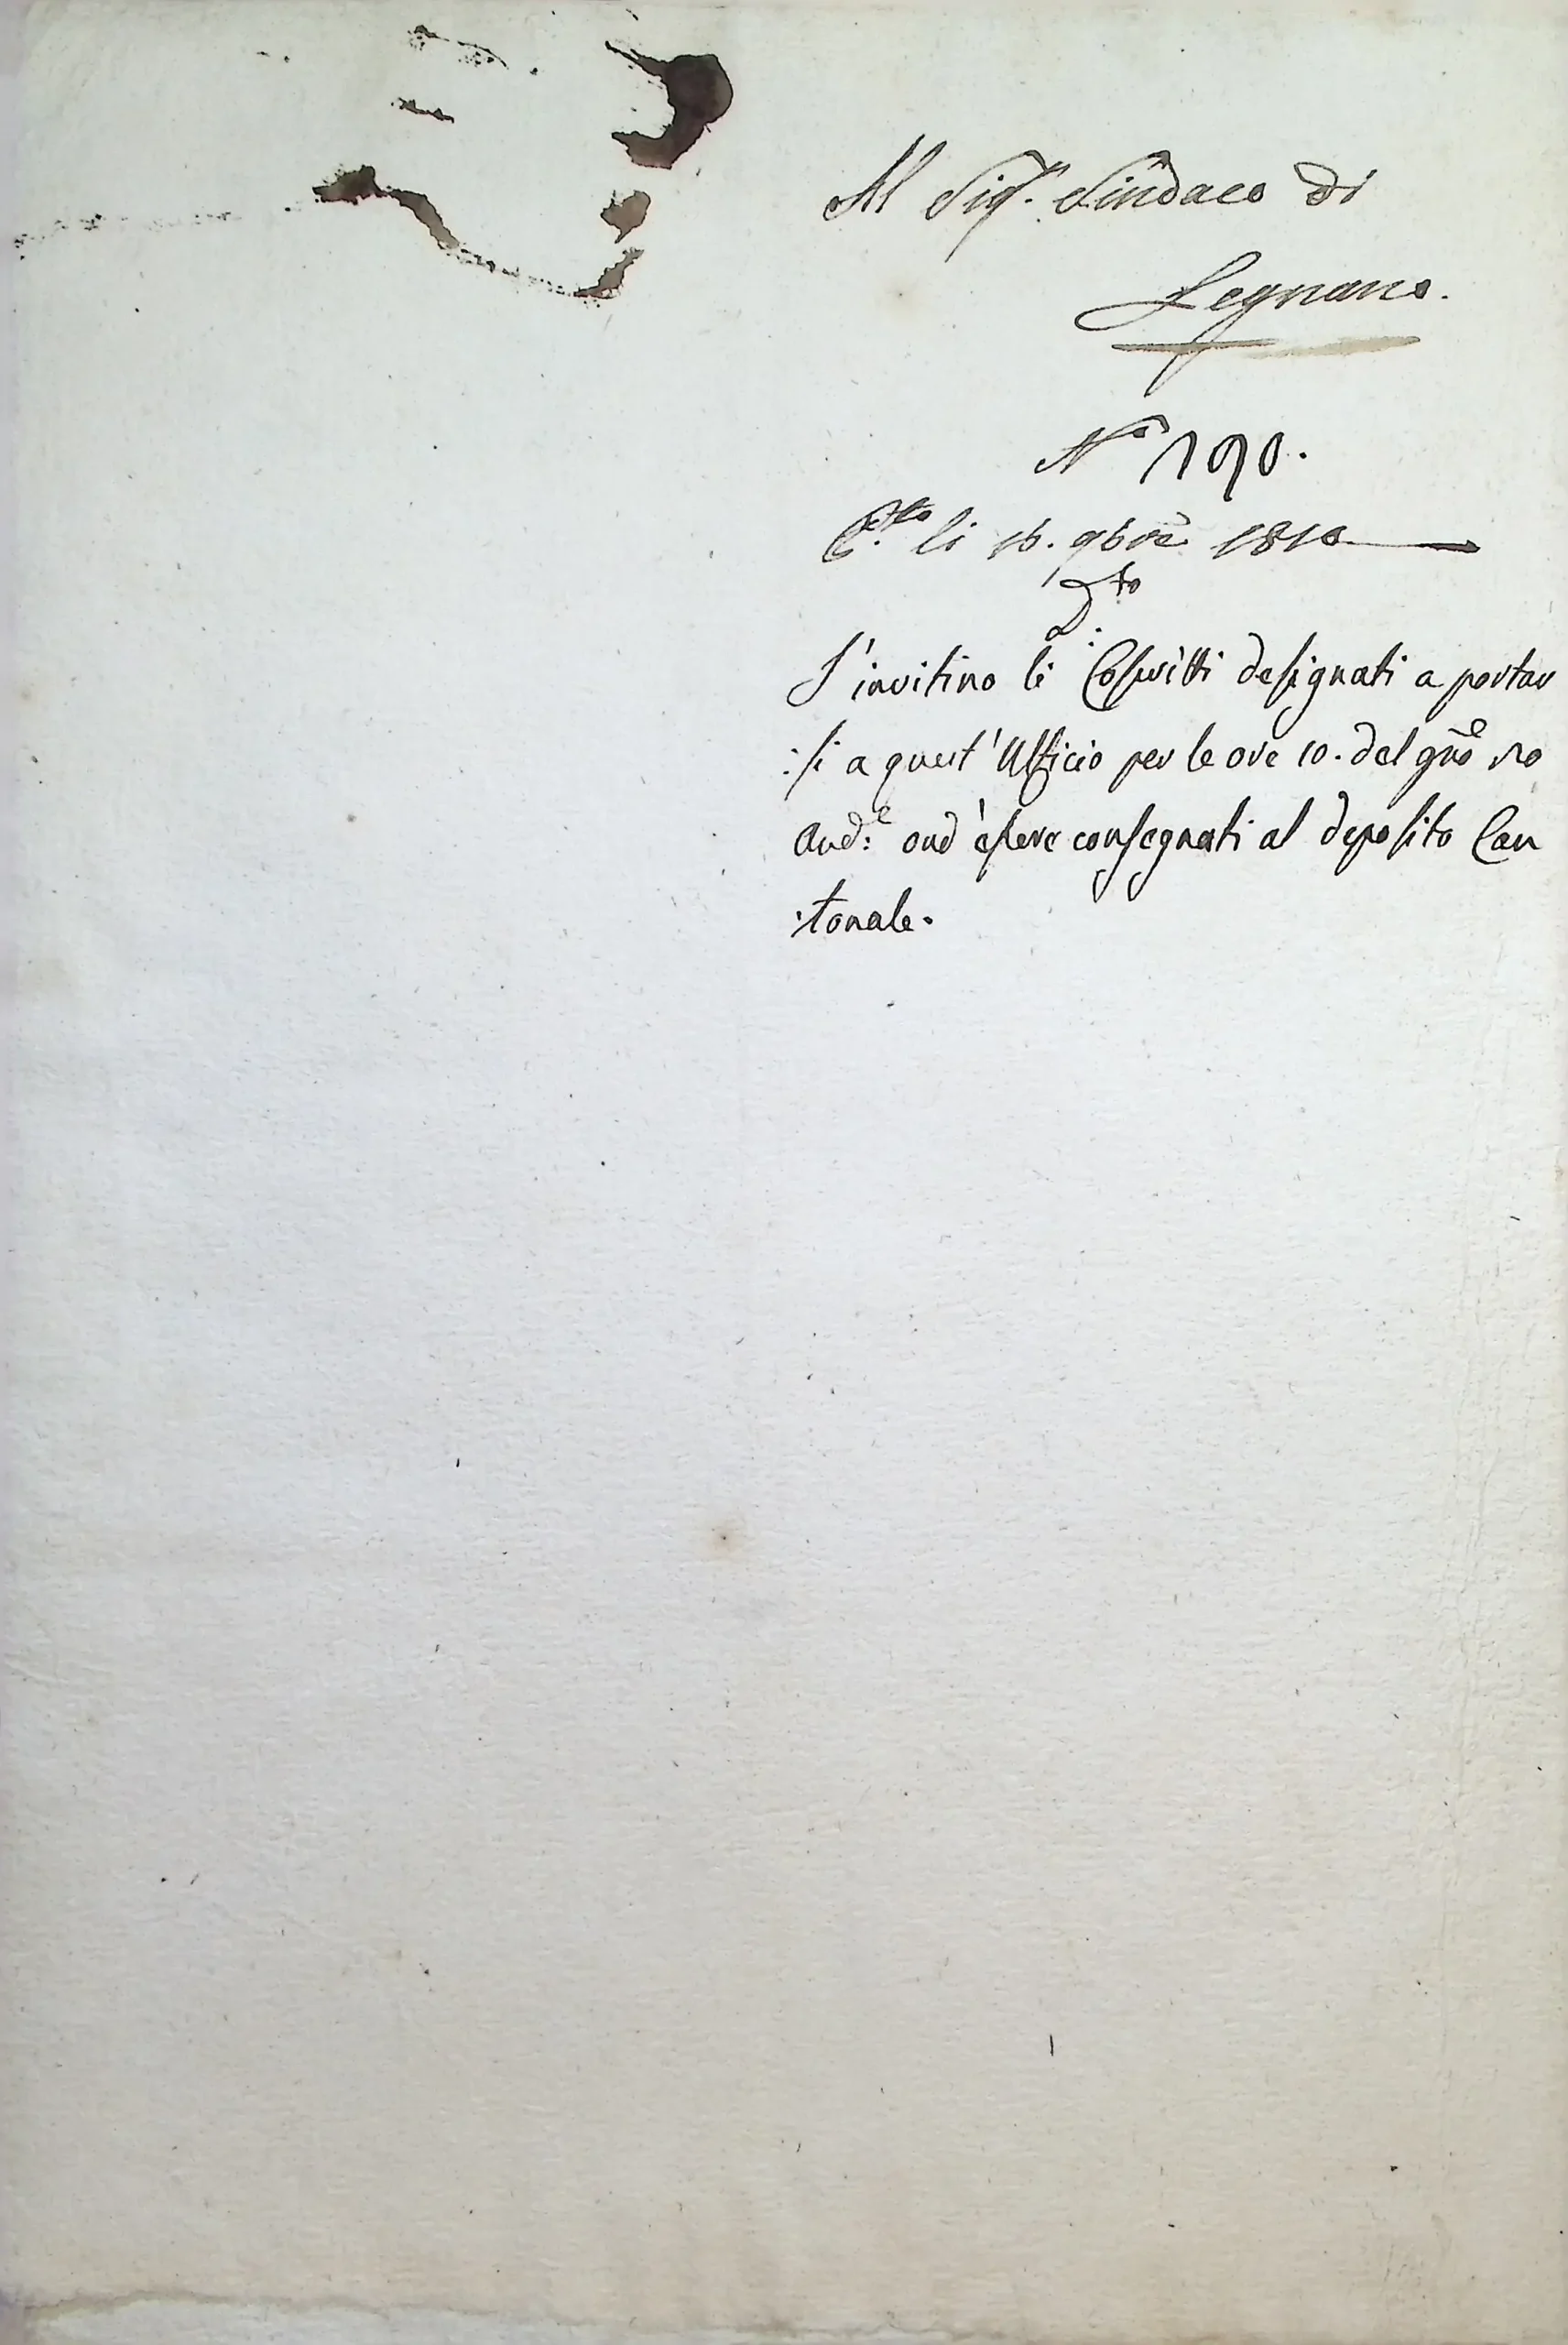 Al Sig.r Sindaco di
Legnano.
N.o 190.
P.to li 16. 9bre 1810
D.to
S'invitino li Coscritti designati a portar
:si a quest'Ufficio per le ore 10. del gno
And:e ond'essere consegnati al deposito Can
:tonale.